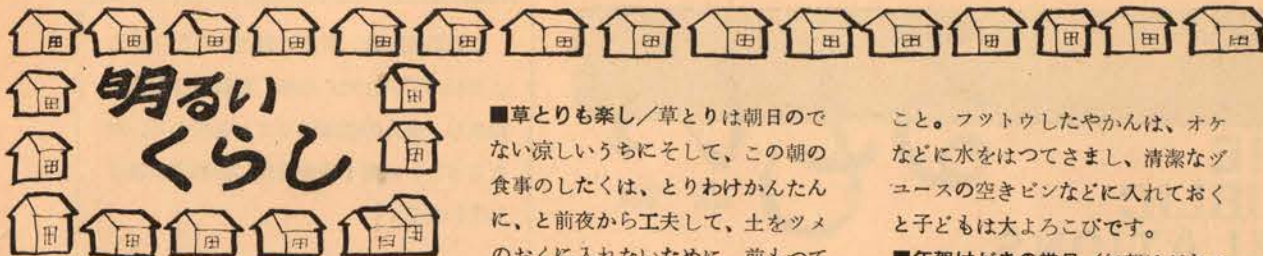 明るい
くらし
■草とりも楽し／草とりは朝日ので
ない涼しいうちにそして、この朝の
食事のしたくは、とりわけかんたん
に、と前夜から工夫して、土をツメ
のおくに入れないために、前もつて
こと。フツトウしたやかんは、オケ
などに水をはつてさまし、清潔なヅ
ユースの空きビンなどに入れておく
と子どもは大よろこびです。